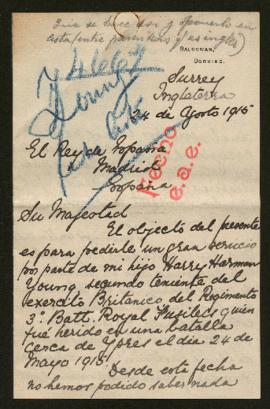 BALGOWAN,
DORKING.
Surrey
Inglaterra
24 de Agosto 1915
Young
El Rey de España
Madrid
España
Hecho
e.a.e.
Su Majestad
El objecto del presente
es para pedirle un gran servicio
por parte de mi hijo Harry Harman
Young, segundo teniente del
exercito Britanico del Regimento
3º Batt. Royal Fusileers quien
fué herido en una batalla
cerca de Ypres el dia 24 de
Mayo 1915.
Desde esta fecha
no hemos podido saber nada